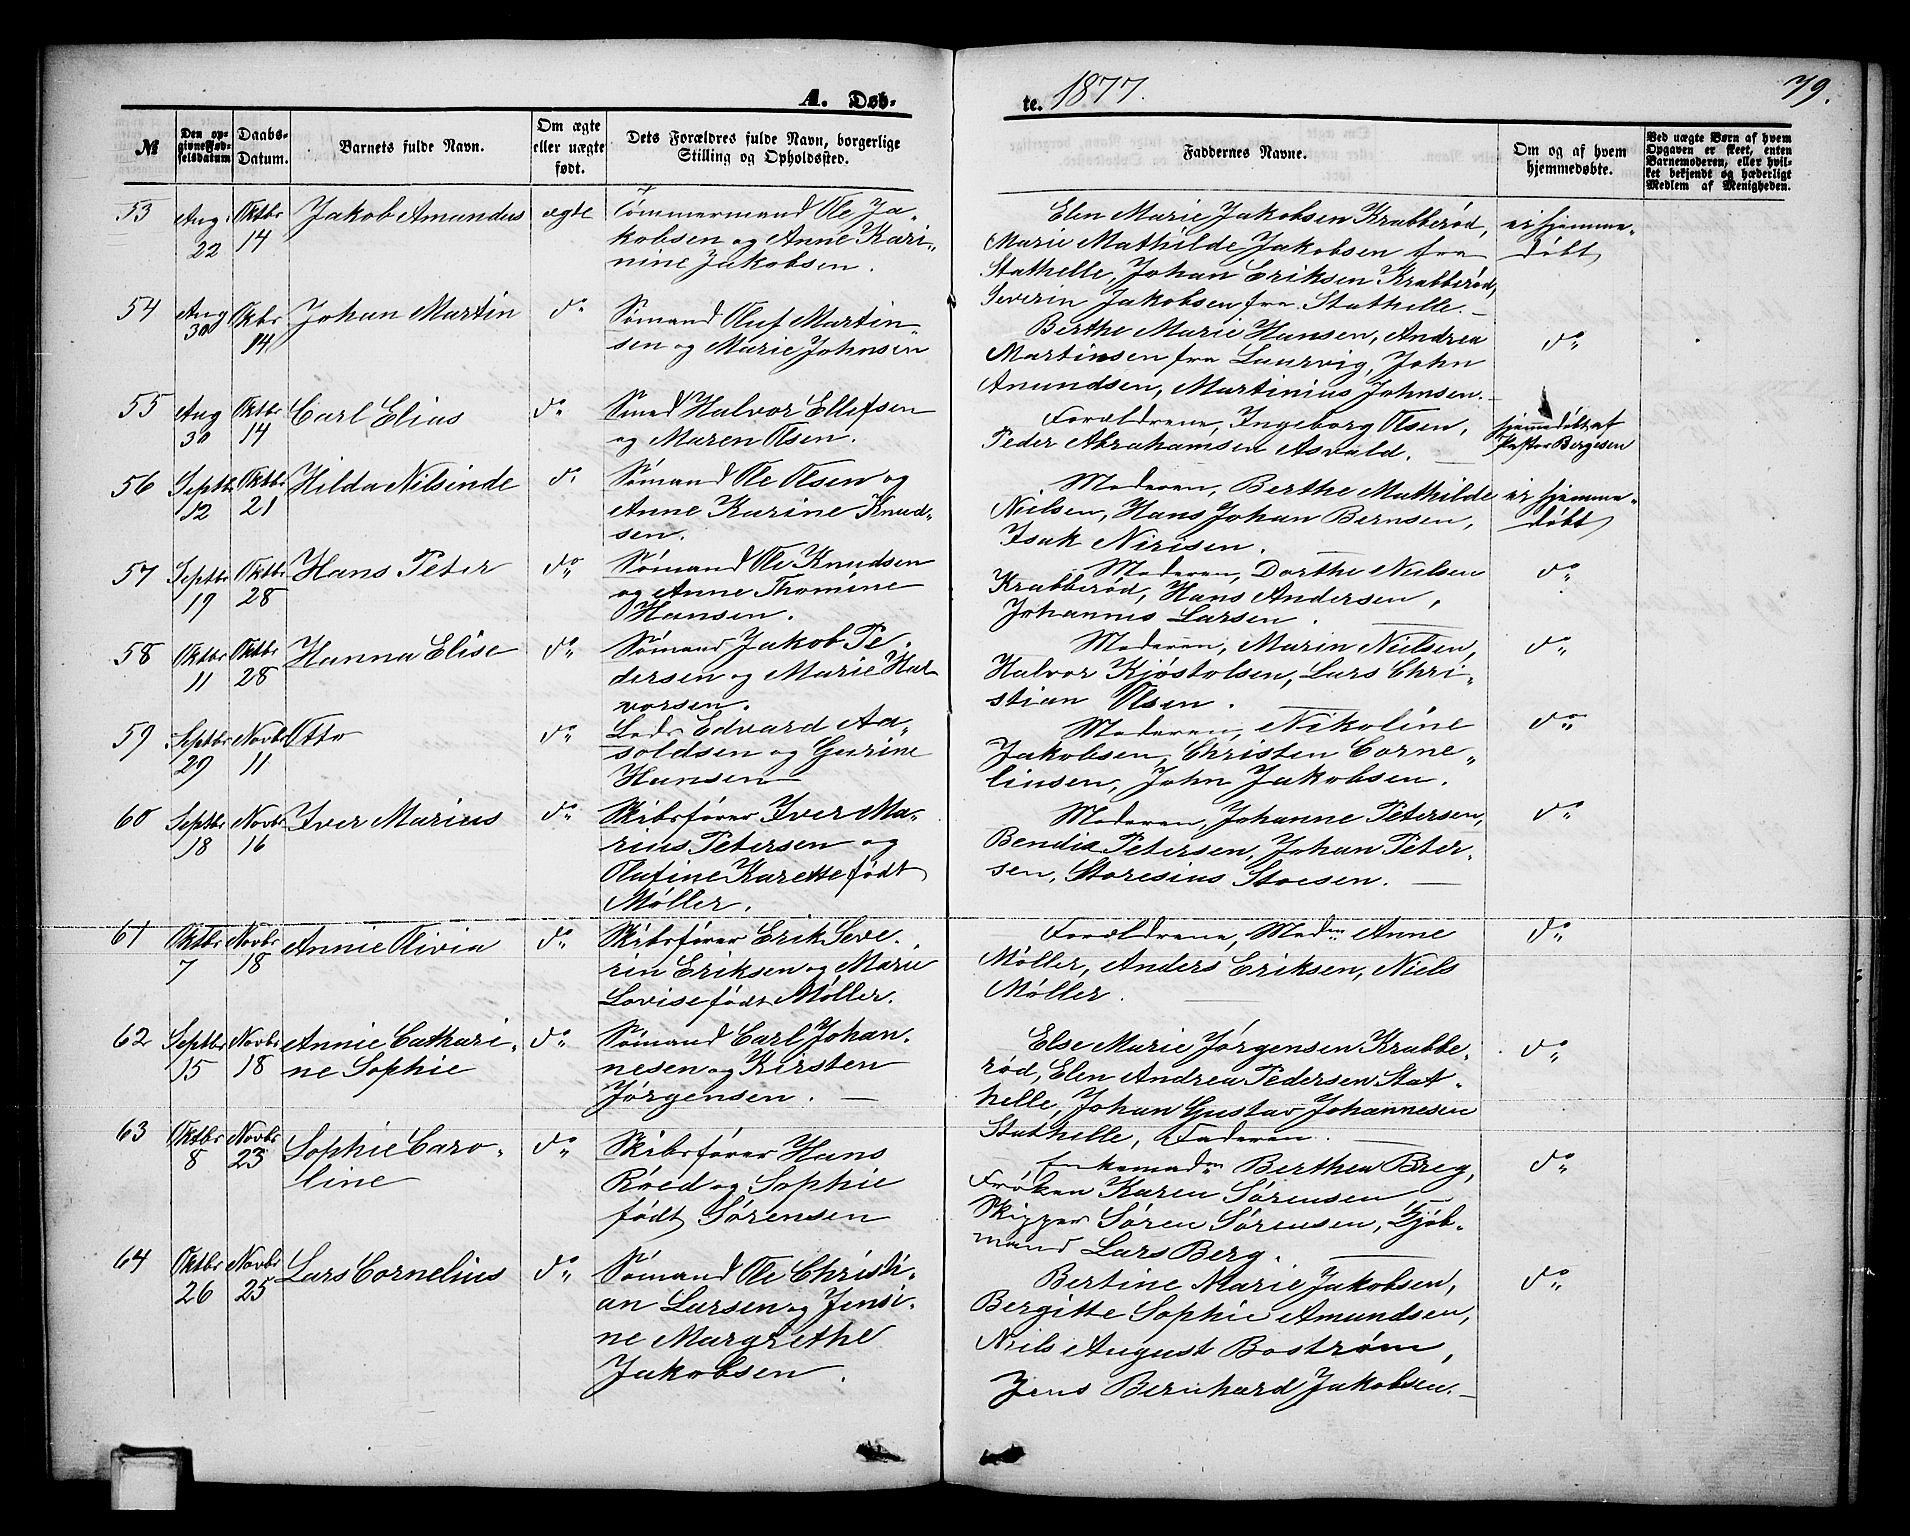 A. Døb-
te. 1877.
79.
№
Den op-
givne Fød-
selsdatum
Daabs-
Datum.
Barnets fulde Navn.
Om ægte
eller uægte
født.
Dets Forældres fulde Navn, borgerlige
Stilling og Opholdssted.
Faddernes Navne.
Om og af hvem
hjemmedøbte.
Ved uægte Børn af hvem
Opgaven er skeet, enten
Barnemoderen, eller hvil-
ket bekjendt og hæderligt
Medlem af Menigheden.
53
Aug
22
Oktbr
14
Jakob Amandus
ægte
Tømmermand Ole Ja-
kobsen og Anne Kari-
nine Jakobsen.
Elen Marie Jakobsen Krabberød,
Marie Mathilde Jakobsen fra
Stathelle, Johan Eriksen Krabberød,
Severin Jakobsen fra Stathelle.
er hjemme-
døbt
54
Aug
30
Oktbr
14
Johan Martin
do
Sømand Oluf Martin-
sen og Marie Johnsen
Berthe Marie Hansen, Andrea
Martinsen fra Laurvig, John
Amundsen, Martinius Johnsen.
do
55
Aug
30
Oktbr
14
Carl Elias
do
Smed Halvor Ellefsen
og Maren Olsen.
Forældrene, Ingeborg Olsen,
Peder Abrahamsen Asvald.
hjemmedøbt af
Pastor Bergesen
56
Septbr
12
Oktbr
21
Hilda Nilsinde
do
Sømand Ole Olsen og
Anne Karine Knud-
sen.
Moderen, Berthe Mathilde
Nielsen, Hans Johan Bernsen,
Isak Nirisen.
er hjemme-
døbt
57
Septbr
19
Oktbr
28
Hans Peter
do
Sømand Ole Knudsen
og Anne Thomine
Hansen.
Moderen, Dorthe Nielsen
Krabberød, Hans Andersen,
Johannes Larsen.
do
58
Oktbr
11
Oktbr
28
Hanna Elise
do
Sømand Jakob Pe-
dersen og Marie Hal-
vorsen.
Moderen, Marin Nielsen,
Halvor Kjøstolsen, Lars Chri-
stian Olsen.
do
59
Septbr
29
Novbr
11
Otto
do
Lods Edvard Ad-
soldsen og Gurine
Hansen
Moderen, Nikoline
Jakobsen, Christen Corne-
liusen, John Jakobsen.
do
60
Septbr
18
Novbr
16
Iver Marius
do
Skibsfører Iver Ma-
rius Petersen og
Olufine Karette født
Møller.
Moderen, Johanne Petersen,
Bendix Petersen, Johan Peter-
sen, Storesius Stoesen.
do
61
Oktbr
7
Novbr
18
Annie Olivia
do
Skibsfører Erik Seve-
rin Eriksen og Marie
Lovise født Møller.
Forældrene, Madm Anne
Møller, Anders Eriksen, Niels
Møller.
do
62
Septbr
15
Novbr
18
Annie Cathari-
ne Sophie
do
Sømand Carl Johan-
nesen og Kirsten
Jørgensen.
Else Marie Jørgensen Krabbe-
rød, Elen Andrea Pedersen Stat-
helle, Johan Gustav Johannesen
Stathelle, Faderen.
do
63
Oktbr
8
Novbr
23
Sophie Caro-
line
do
Skibsfører Hans
Røed og Sophie
født Sørensen
Enkemadm Berthea Breg,
Frøken Karen Sørensen
Skipper Søren Sørensen, Gjøb-
mand Lars Berg.
do
64
Oktbr
26
Novbr
25
Lars Cornelius
do
Sømand Ole Christi-
an Larsen og Jensi-
ne Margrethe
Jakobsen.
Bertine Marie Jakobsen,
Bergitte Sophie Amundsen,
Niels August Bostrøm,
Jens Bernhard Jakobsen.
do